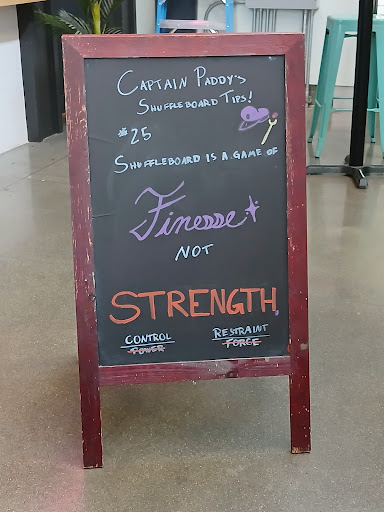 CAPTAIN PADDY'S
SHUFFLEBOARD TIPS!
#25
SHUFFLEBOARD IS A GAME OF
Finesse
NOT
STRENGTH,
CONTROL RESTRAINT
POWER FORCE